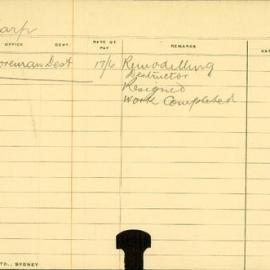 arp
OFFICE DEPT. RATE OF PAY REMARKS
oreman Dest 17/6 Remodelling
Destructor
Resigned
Work Completed
TD., SYDNEY